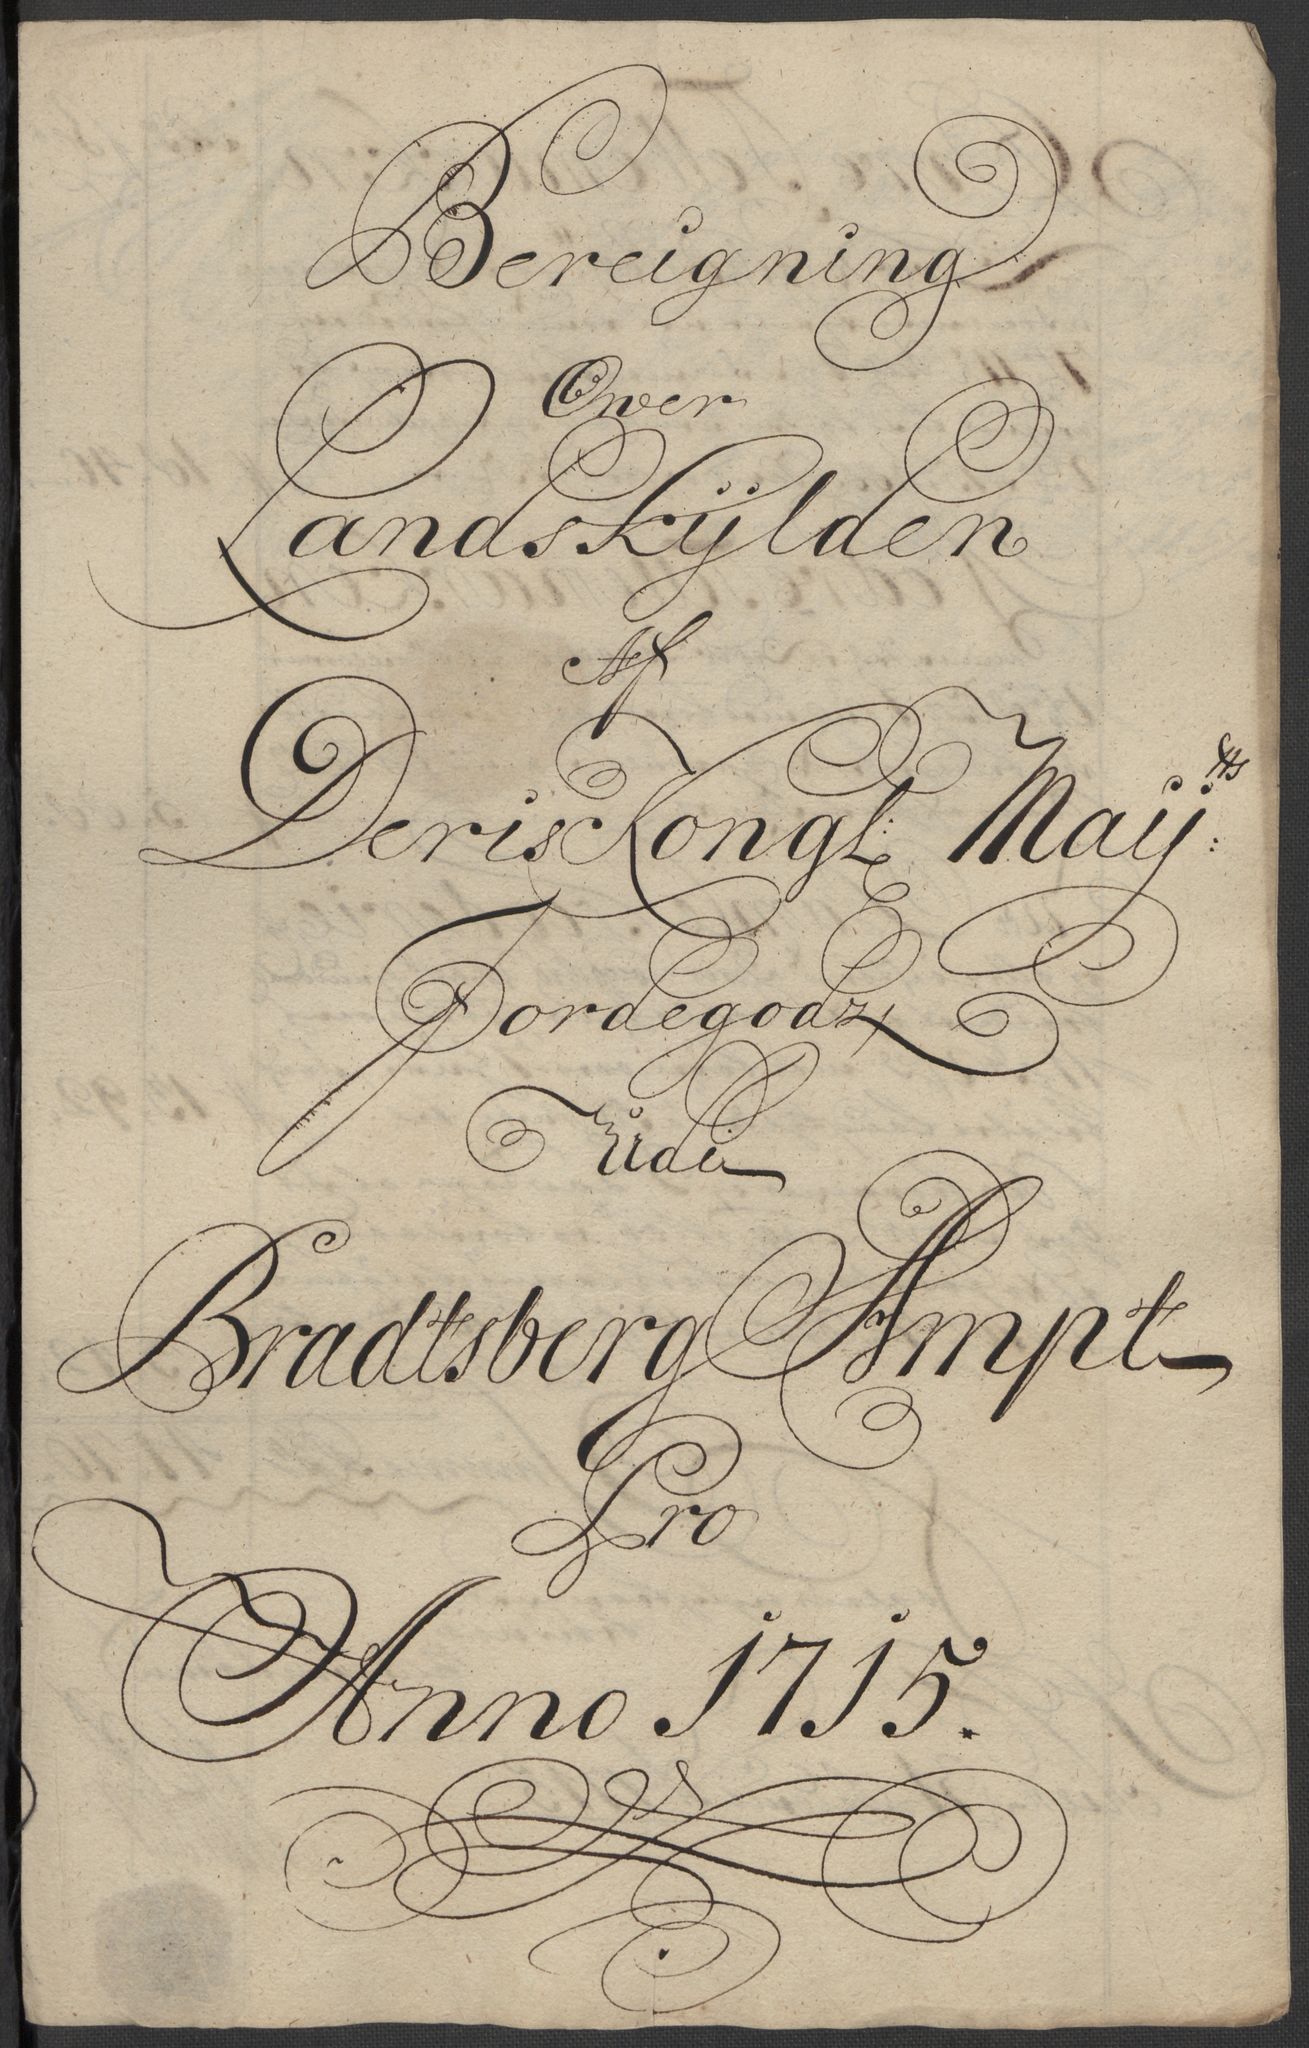 Bereigning
Over
Landskÿlden
Af
Deris Kongl: Maÿ:tts
Jordegodz
Udi
Bradtsberg Ampt
Pro
Anno 1715.